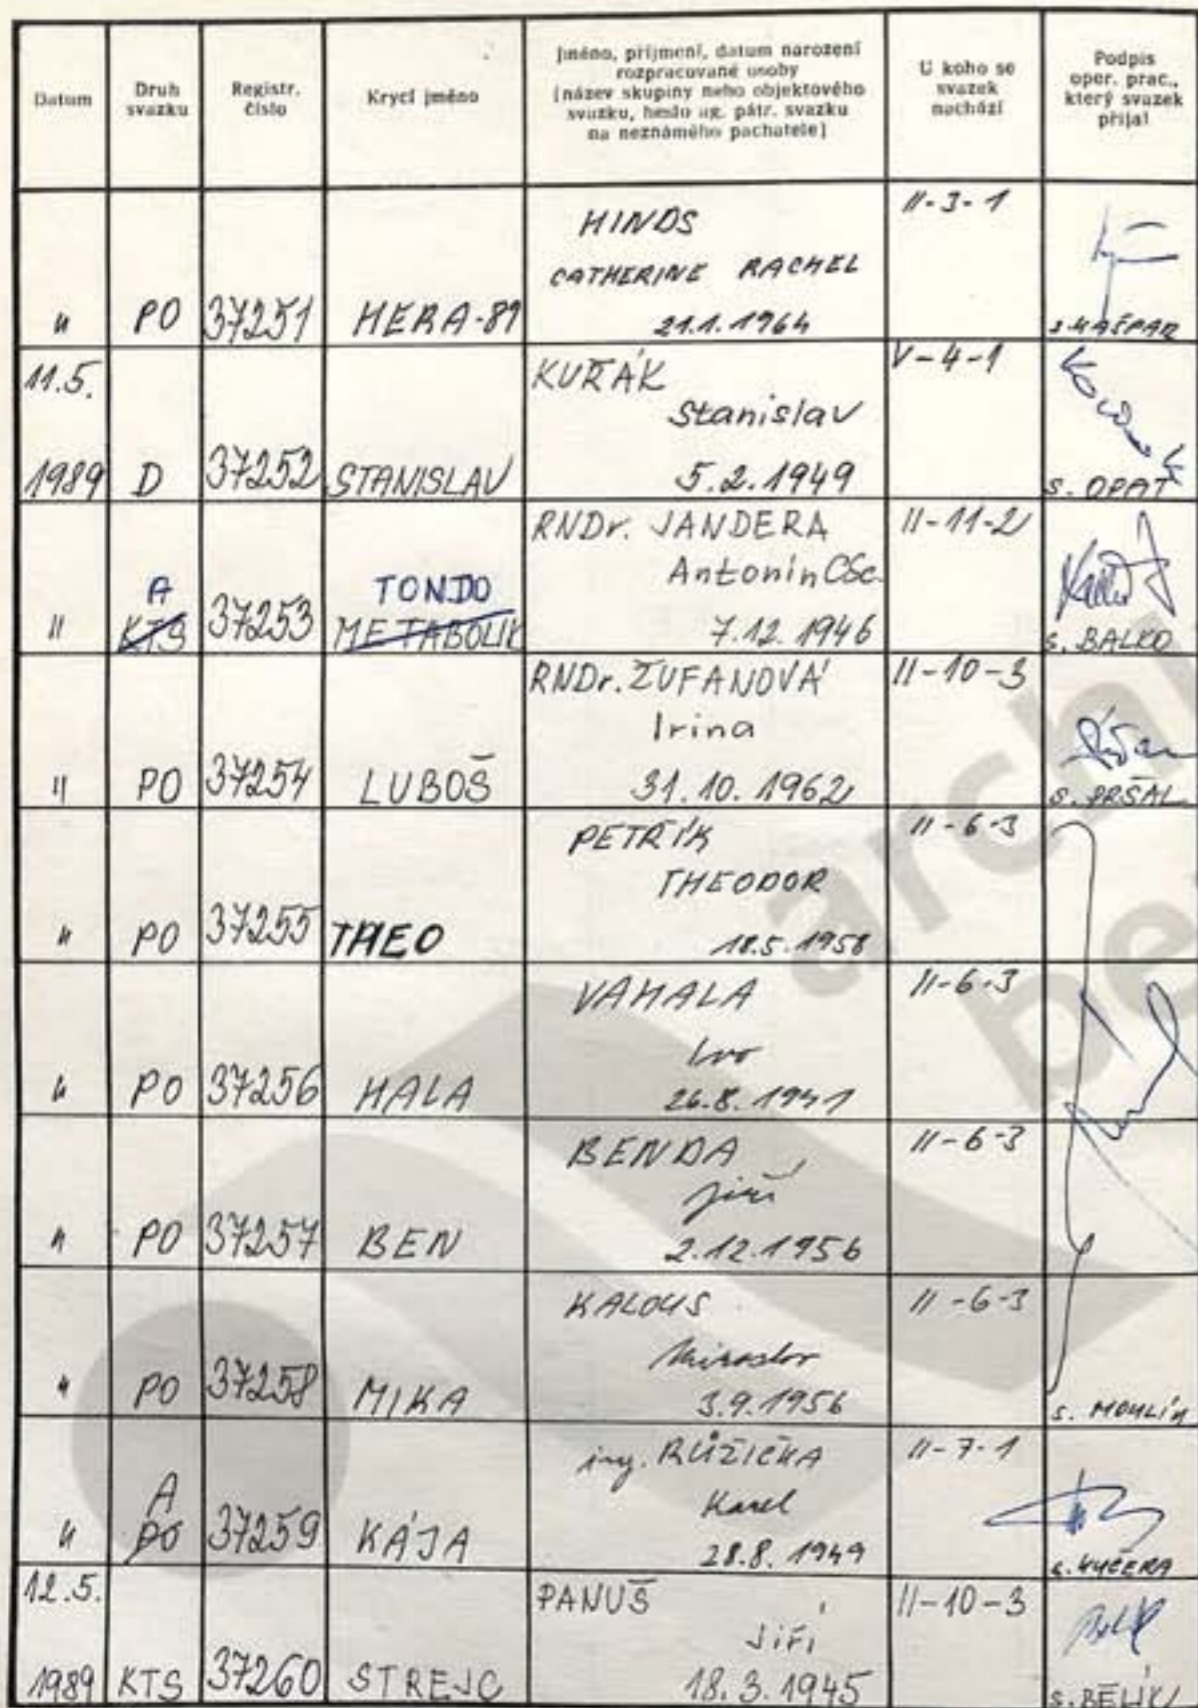 Datum
Druh
svazku
Registr.
číslo
Krycí jméno
Jméno, příjmení, datum narození
rozpracované osoby
(název skupiny nebo objektového
svazku, heslo ag. pátr. svazku
na neznámého pachatele)
U koho se
svazek
nachází
Podpis
oper. prac.,
který svazek
přijal
HINDS
CATHERINE RACHEL
21.1.1964
II-3-1
" PO 37251 HERA-89
S. KAŠPAR
11.5.
1989 D 37252 STANISLAV
KUŘÁK
Stanislav
5.2.1949
V-4-1
S. OPAT
A
TONDO
" KTS 37253 METABOLIK
RNDr. JANDERA
Antonín CSc.
7.12.1946
II-11-2
S. BALKO
" PO 37254 LUBOŠ
RNDr. ŽUFANOVÁ
Irina
31.10.1962
II-10-3
S. PRŠAL
" PO 37255 THEO
PETŘÍK
THEODOR
18.5.1958
II-6-3
" PO 37256 HALA
VAHALA
Ivo
26.8.1941
II-6-3
" PO 37257 BEN
BENDA
Jiří
2.12.1956
II-6-3
" PO 37258 MIKA
KALOUS
Miroslav
3.9.1956
II-6-3
S. MOULÍN
A
" PO 37259 KÁJA
ing. RŮŽIČKA
Karel
28.8.1949
II-7-1
S. KUČERA
12.5.
1989 KTS 37260 STREJC
PANUŠ
Jiří
18.3.1945
II-10-3